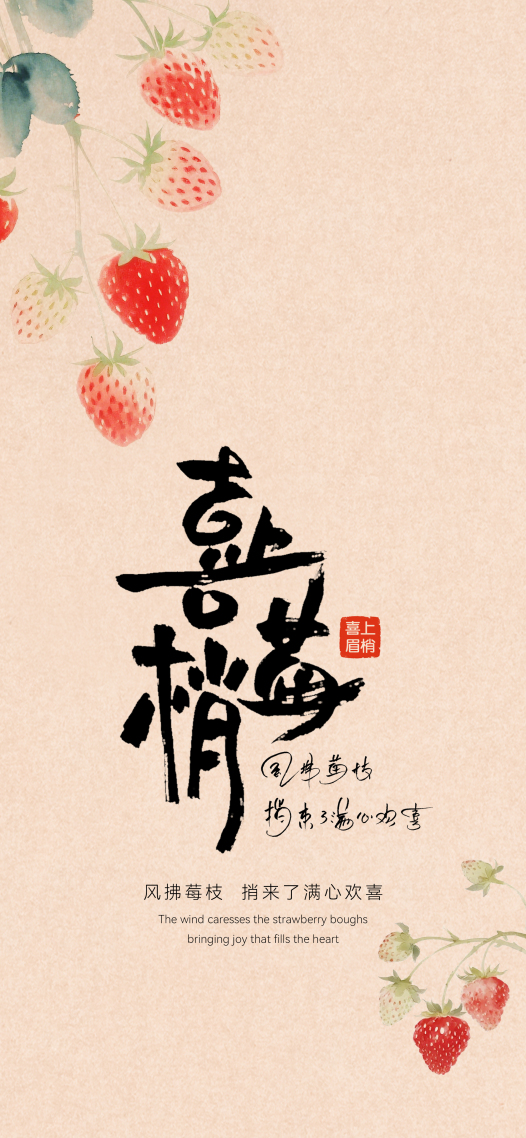 喜上莓梢
喜上
眉梢
风拂莓枝
捎来了满心欢喜
风拂莓枝 捎来了满心欢喜
The wind caresses the strawberry boughs
bringing joy that fills the heart